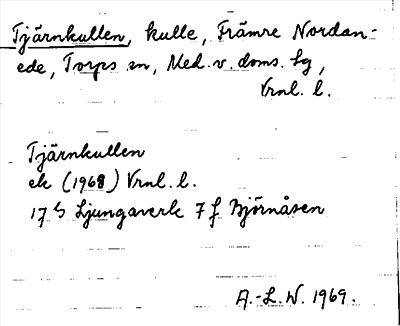 Tjärnkullen, kulle, Främre Nordan-
ede, Torps sn, Med. v. doms. sg,
Vrnl. l.
Tjärnkullen
ek (1968) Vrnl. l.
17 G Ljungaverk 7 f Björnåsen
A.-L. W. 1969.